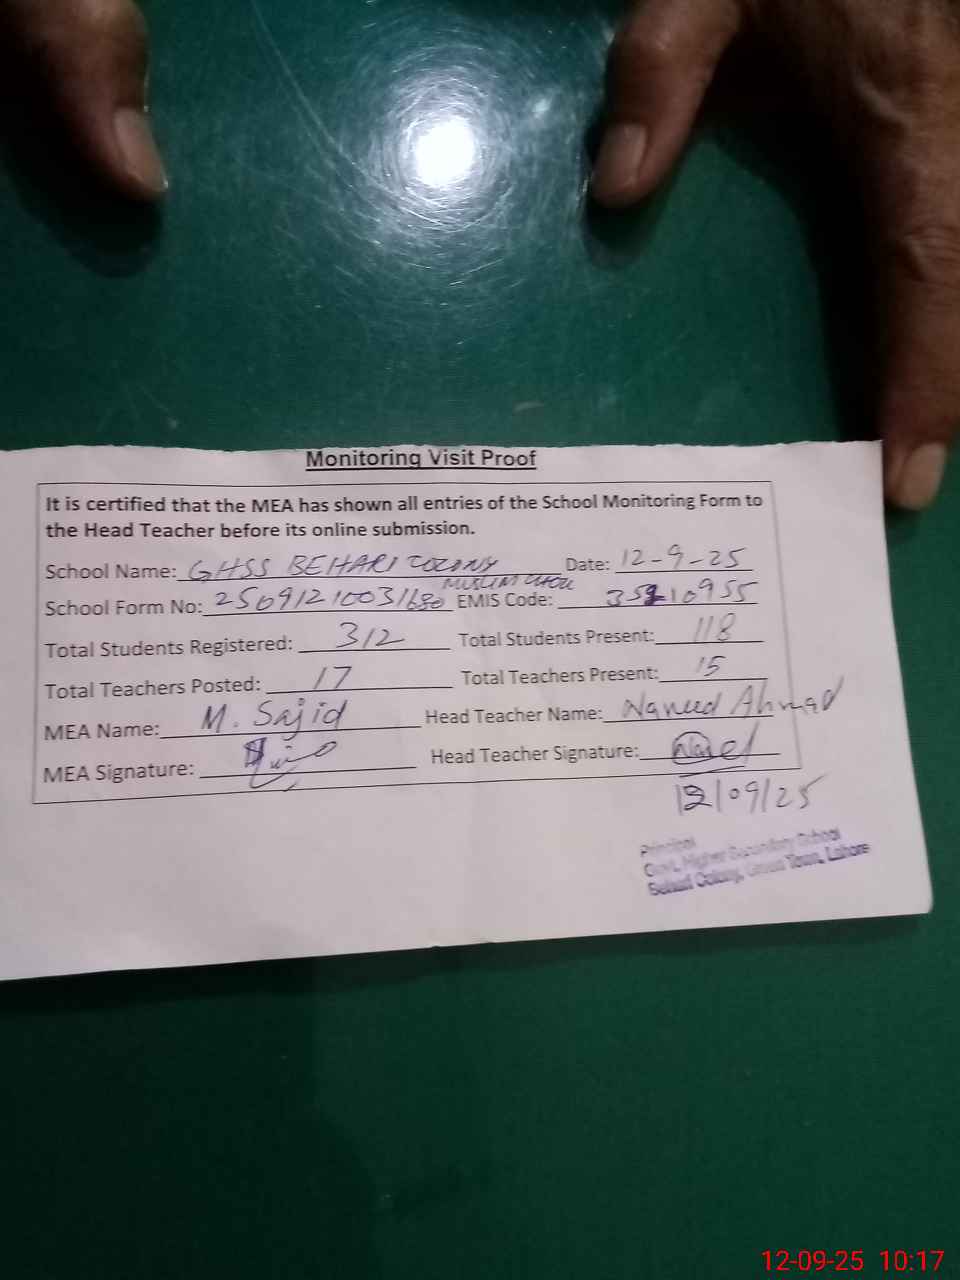 Monitoring Visit Proof
It is certified that the MEA has shown all entries of the School Monitoring Form to
the Head Teacher before its online submission.
School Name: GHSS BEHARI COLONY Date: 12-9-25
MUSLIM
School Form No: 25091210031680 EMIS Code: 35210955
Total Students Registered: 312 Total Students Present: 118
Total Teachers Posted: 17 Total Teachers Present: 15
MEA Name: M. Sajid Head Teacher Name: Naveed Ahmad
MEA Signature: Head Teacher Signature:
12/09/25
Principal
Govt. Higher Secondary School
Behari Colony, Town, Lahore
12-09-25 10:17